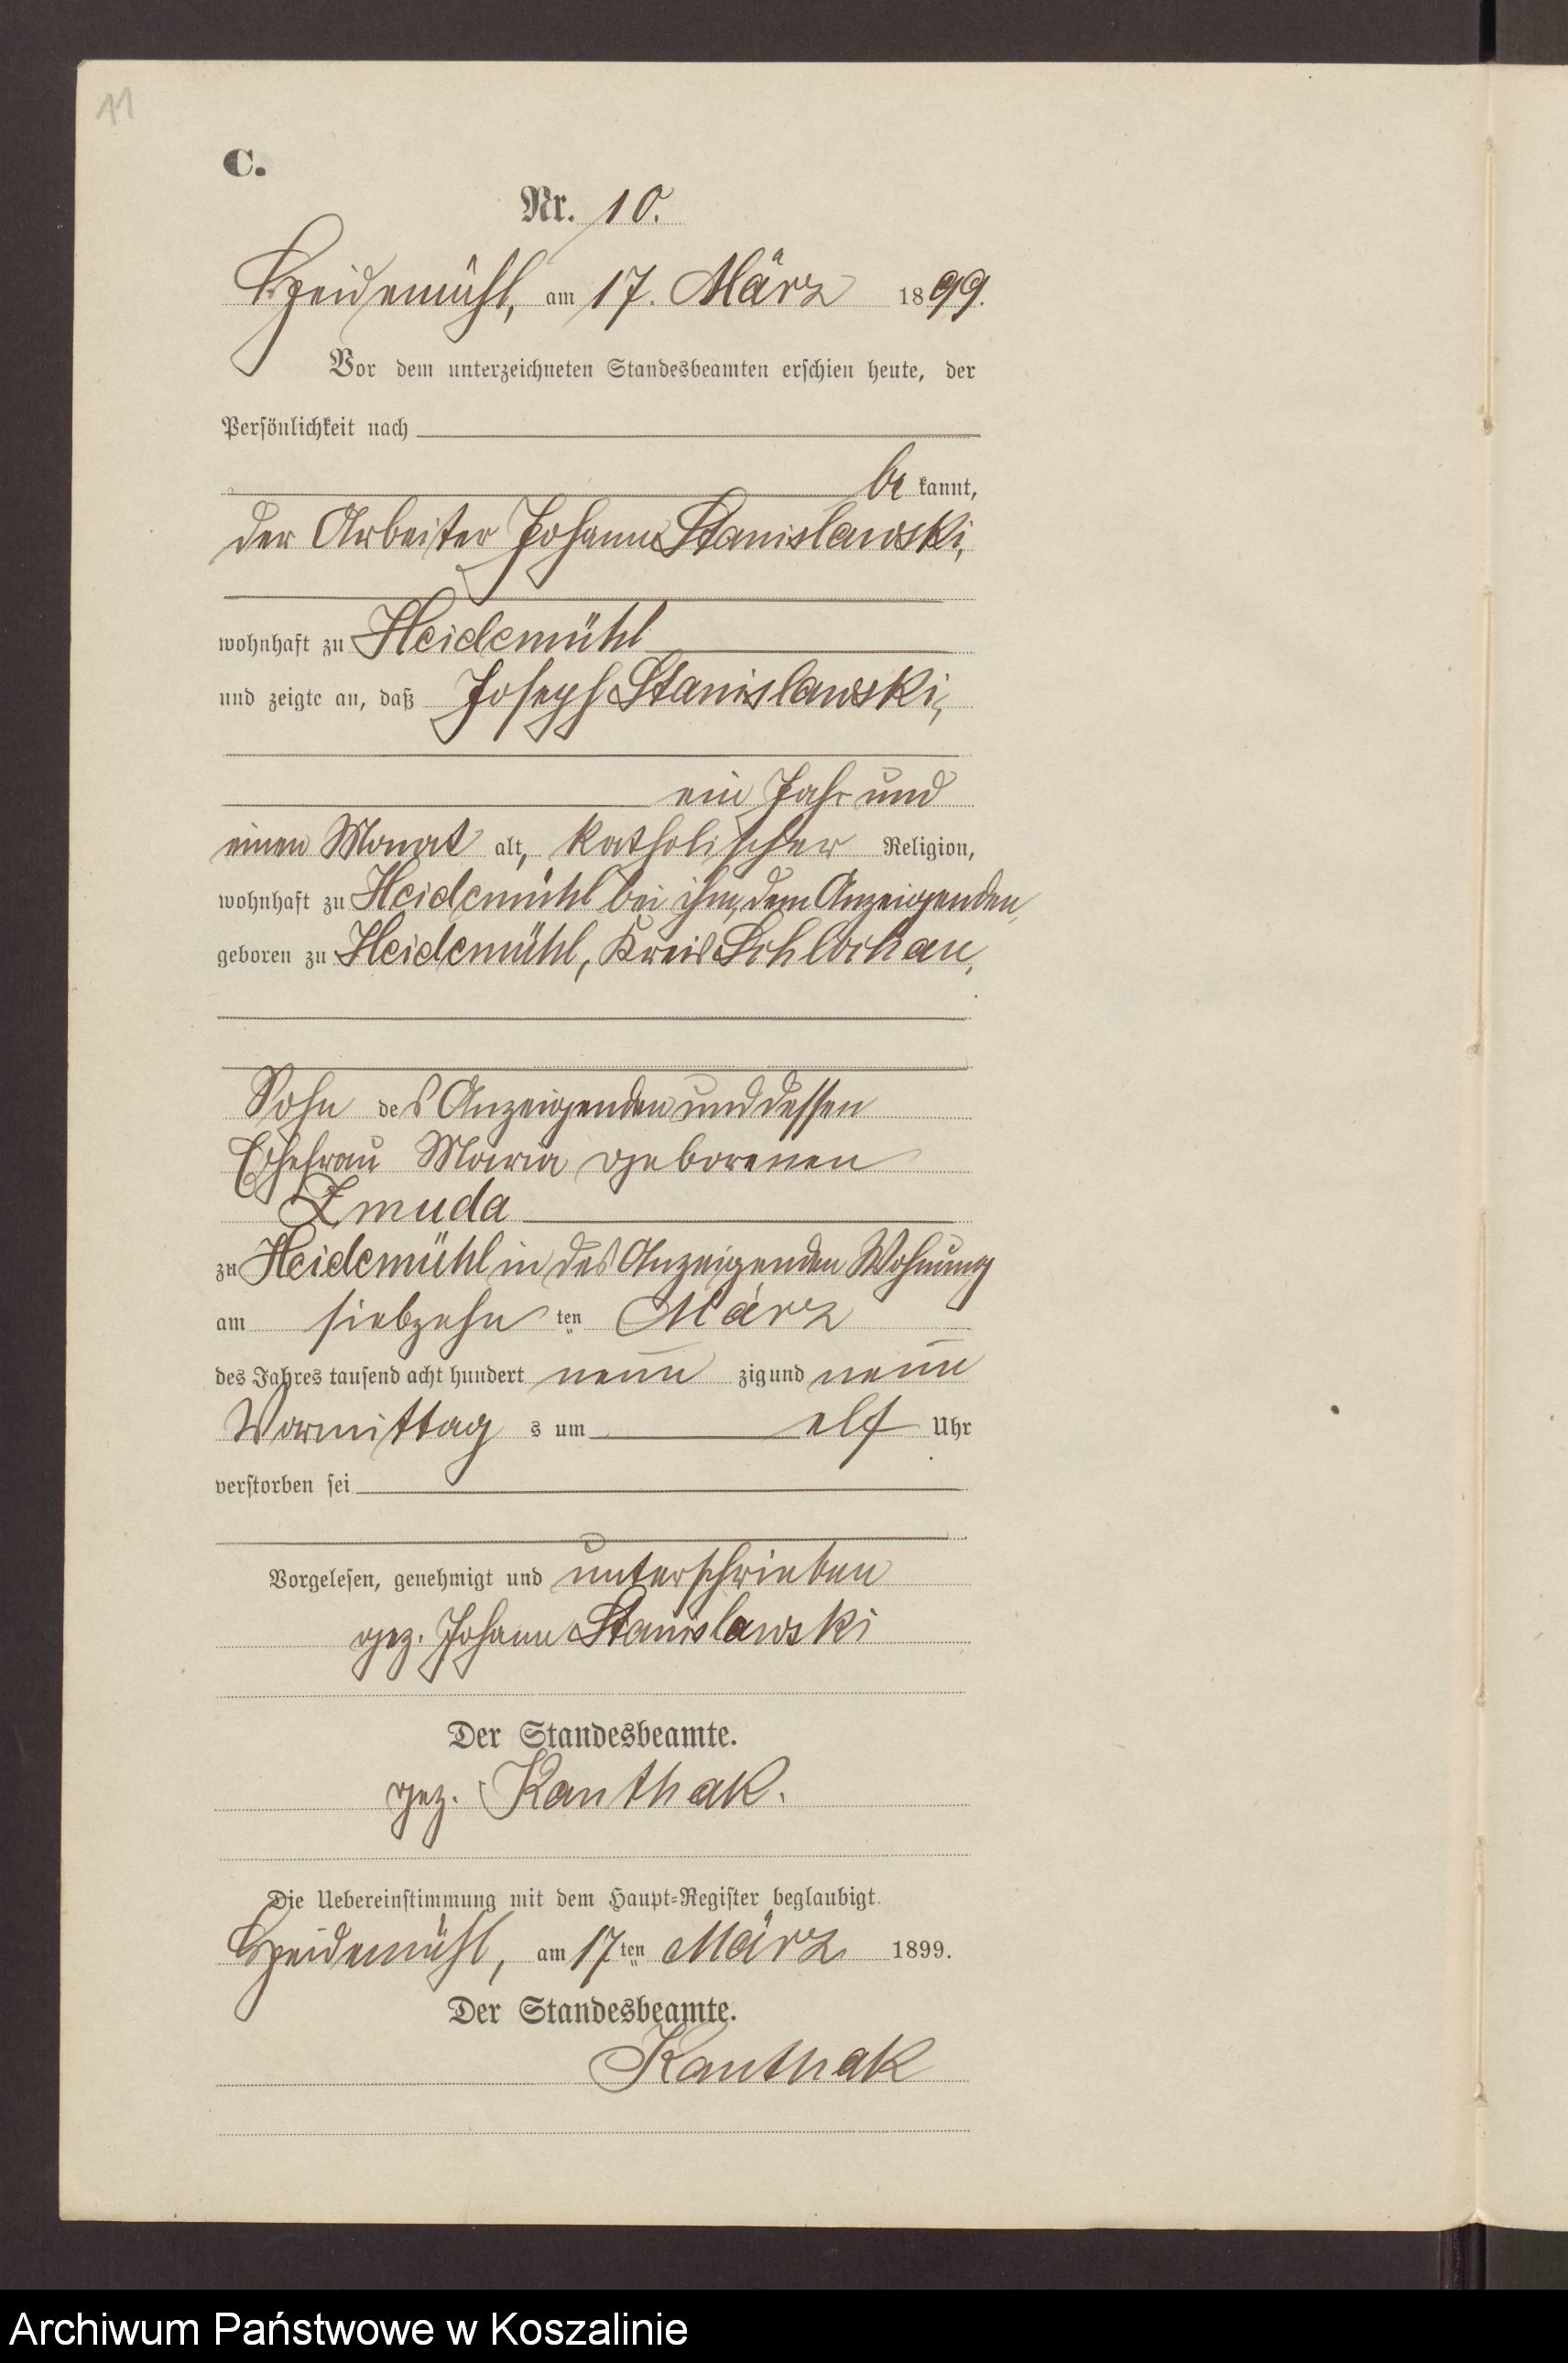 11
C.
Nr. 10.
Heidemühl, am 17. März 1899.
Vor dem unterzeichneten Standesbeamten erschien heute, der
Persönlichkeit nach
be kannt,
der Arbeiter Johann Stanislawski,
wohnhaft zu Heidemühl
und zeigte an, daß Joseph Stanislawski,
ein Jahr und
einen Monat alt, katholischer Religion,
wohnhaft zu Heidemühl bei ihm, dem Anzeigenden,
geboren zu Heidemühl, Kreis Schlochau,
Sohn des Anzeigenden und dessen
Ehefrau Maria geborenen
Zmuda
zu Heidemühl in des Anzeigenden Wohnung
am siebzehn ten März
des Jahres tausend acht hundert neun zig und neun
Vormittag s um elf Uhr
verstorben sei
Vorgelesen, genehmigt und unterschrieben
gez. Johann Stanislawski
Der Standesbeamte.
gez. Kanthak.
Die Uebereinstimmung mit dem Haupt-Register beglaubigt
Heidemühl, am 17ten März 1899.
Der Standesbeamte.
Kanthak
Archiwum Państwowe w Koszalinie